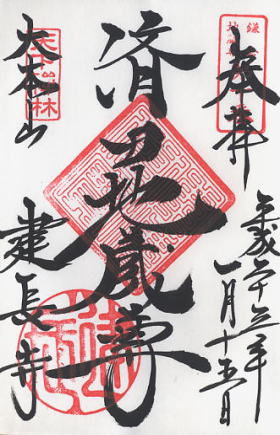 奉拝
平成二十三年
一月十五日
済田地蔵尊
大本山
建長寺